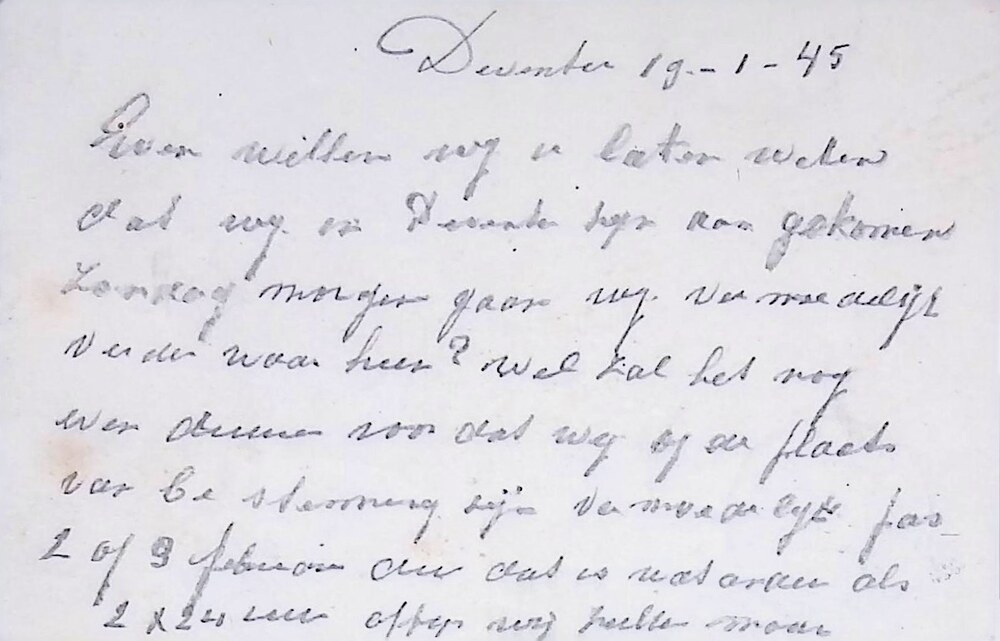 Deventer 19-1-45
Even willen wij u laten weten
dat wij in Deventer zijn aan gekomen
Zondag morgen gaan wij vermoedelijk
verder waar heen? Wel zal het nog
even duuren voor dat wij op de plaats
van be stemming zijn vermoedelijk pas
2 of 3 februari dus dat is wat anders als
2 x 24 uur wij zullen maar